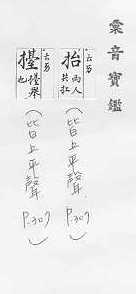 彙音寶鑑
抬 兩人共扛
(皆上平聲 P.307)
擡 擡舉也
(皆上平聲 P.307)